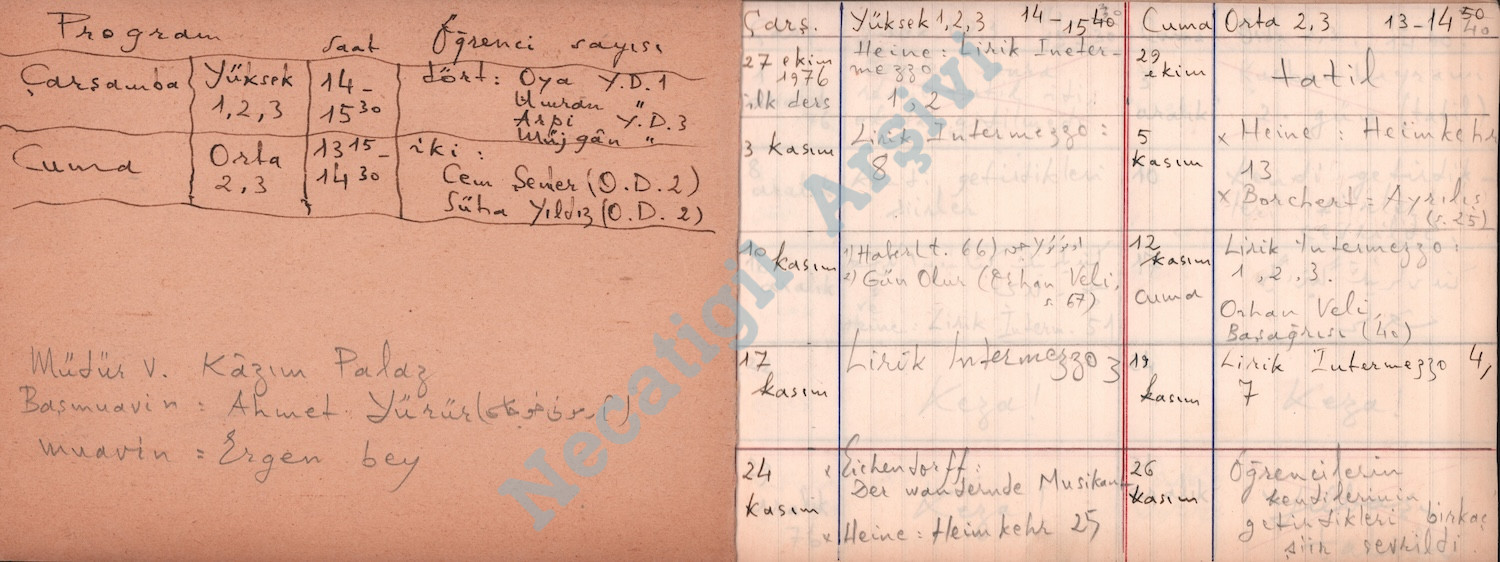 Program
saat
Öğrenci sayısı
Çarşamba
Yüksek
1,2,3
14 –
15 30
dört: Oya Y.D.1
Umran "
Arpi Y.D.3
Müjgân "
Cuma
Orta
2,3
13 15 –
14 30
iki :
Cem Şener (O.D.2)
Süha Yıldız (O.D.2)
Müdür v. Kâzım Palaz
Başmuavin : Ahmet Yürür (
muavin : Ergen bey
Çarş.
Yüksek 1,2,3 14 – 15 40
27 ekim
1976
ilk ders
Heine : Lirik Inter-
mezzo
1, 2
3 kasım
Lirik Intermezzo :
8
10 kasım
1) Haber (t. 66)
2) Gün Olur (Orhan Veli,
s. 67)
17
kasım
Lirik Intermezzo 3
24
kasım
x Eichendorff :
Der wandernde Musikant
x Heine : Heimkehr 25
Cuma
Orta 2,3 13 – 14
29
ekim
tatil
5
kasım
x Heine : Heimkehr
13
x Borchert : Ayrılış
(s. 25)
12
kasım
cuma
Lirik Intermezzo :
1, 2, 3.
Orhan Veli,
Başağrısı (40)
19
kasım
Lirik Intermezzo 4,
7
26
kasım
Öğrencilerin
kendilerinin
getirdikleri birkaç
şiir çevrildi
Necatigil Arşivi